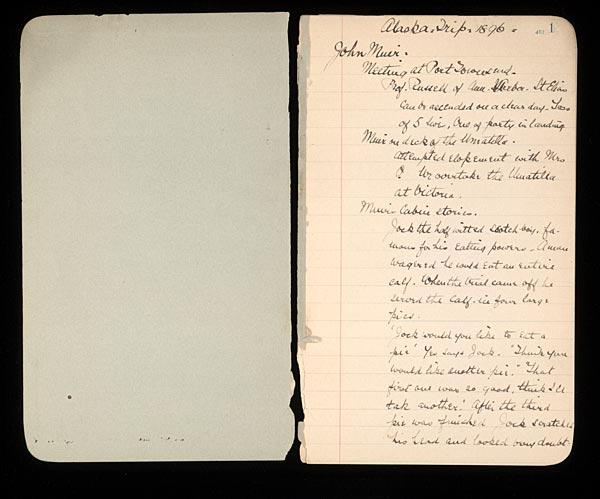 Alaska Trip. 1896.
1
John Muir.
Meeting at Port Townsend.
Prof. Russell of Ann Arbor. St Elias
can be ascended on a clear day. Loss
of 5 lives, One of party in landing
Muir on deck of the Umatilla.
attempted elopement with Mrs
We overtake the Umatilla
at Victoria.
Muir's Cabin stories.
Jock the half witted scotch boy. fa-
mous for his eating powers. A man
wagered he would eat an entire
calf. When the trial came off he
served the calf in four large
pies.
'Jock would you like to eat a
pie' Yes says Jock. "Think you
would like another pie." That
first one was so good, think I'll
tak another.' After the third
pie was finished Jock scratched
his head and looked very doubt-